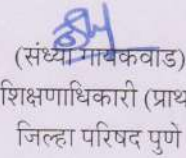 (संध्या गायकवाड)
शिक्षणाधिकारी (प्राथ
जिल्हा परिषद पुणे